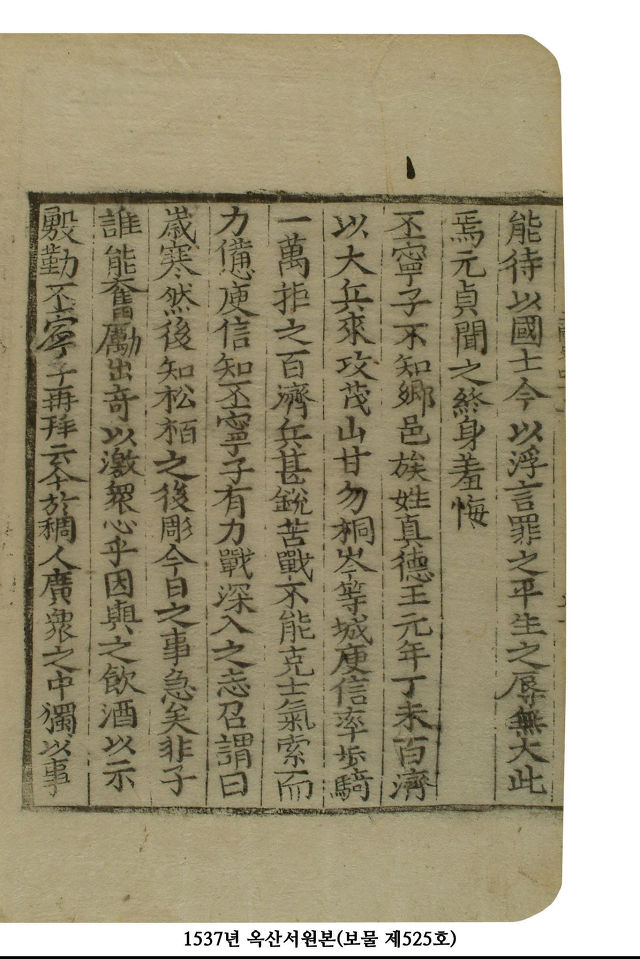 能待以國士今以浮言罪之平生之辱無大此
焉元貞聞之終身羞悔
丕寧子不知鄕邑族姓真德王元年丁未百濟
以大兵來攻茂山甘勿桐岑等城庾信率步騎
一萬拒之百濟兵甚銳苦戰不能克士氣索而
力憊庾信知丕寧子有力戰深入之志召謂曰
歲寒然後知松栢之後彫今日之事急矣非子
誰能奮勵出奇以激衆心乎因與之飮酒以示
殷勤丕寧子再拜云今於稠人廣衆之中獨以事
1537년 옥산서원본(보물 제525호)